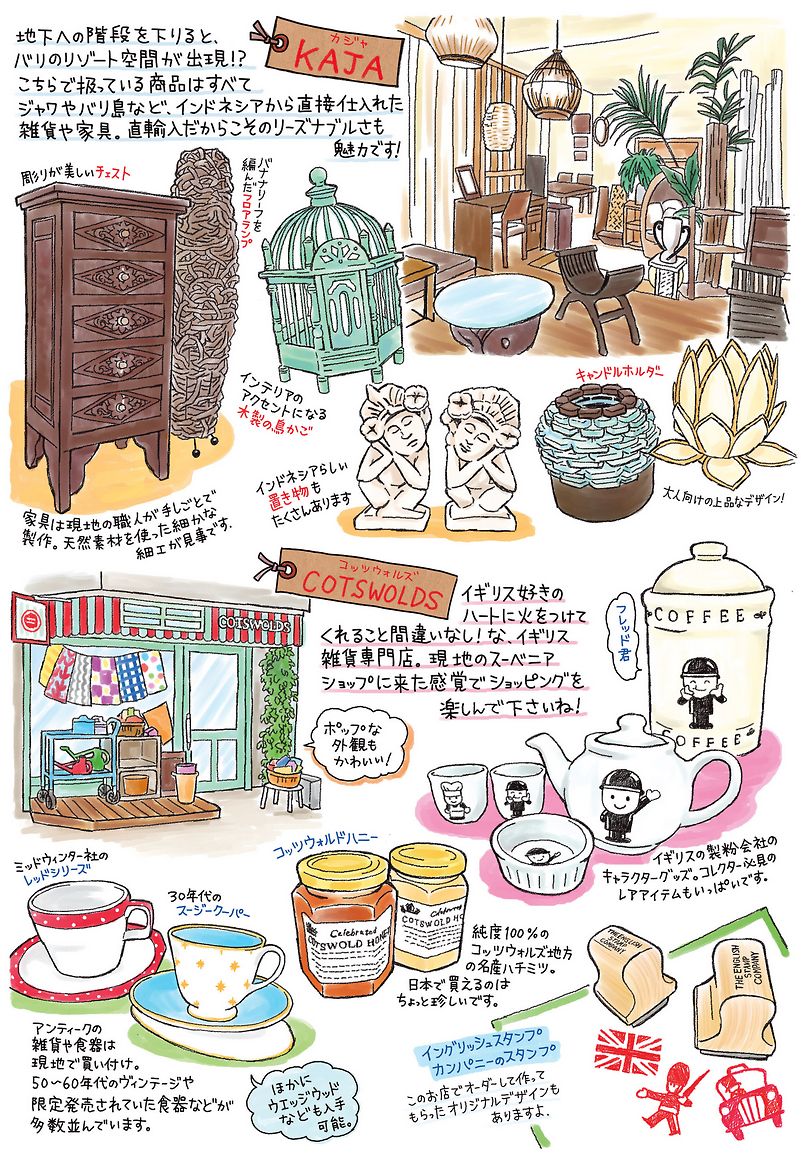 地下への階段を下りると、
バリのリゾート空間が出現!?
こちらで扱っている商品はすべて
ジャワやバリ島など、インドネシアから直接仕入れた
雑貨や家具。直輸入だからこそのリーズナブルさも
魅力です!
カジャ
KAJA
彫りが美しいチェスト
バナナリーフを
編んだフロアランプ
インテリアの
アクセントになる
木製の鳥かご
キャンドルホルダー
インドネシアらしい
置き物も
たくさんあります
大人向けの上品なデザイン!
家具は現地の職人が手しごとで
製作。天然素材を使った細かな
細工が見事です。
コッツウォルズ
COTSWOLDS
イギリス好きの
ハートに火をつけて
くれること間違いなし!な、イギリス
雑貨専門店。現地のスーベニア
ショップに来た感覚でショッピングを
楽しんで下さいね!
COTSWOLDS
ポップな
外観も
かわいい!
フレッド君
COFFEE
COFFEE
イギリスの製粉会社の
キャラクターグッズ。コレクター必見の
レアアイテムもいっぱいです。
ミッドウィンター社の
レッドシリーズ
30年代の
スージークーパー
コッツウォルドハニー
Celebrated
COTSWOLD HONEY
COTSWOLD HO
純度100%の
コッツウォルズ地方
の名産ハチミツ。
日本で買えるのは
ちょっと珍しいです。
アンティークの
雑貨や食器は
現地で買い付け。
50~60年代のヴィンテージや
限定発売されていた食器などが
多数並んでいます。
ほかに
ウエッジウッド
なども入手
可能。
THE ENGLISH
STAMP
COMPANY
THE ENGLISH
STAMP
COMPANY
イングリッシュスタンプ
カンパニーのスタンプ
このお店でオーダーして作って
もらったオリジナルデザインも
ありますよ。